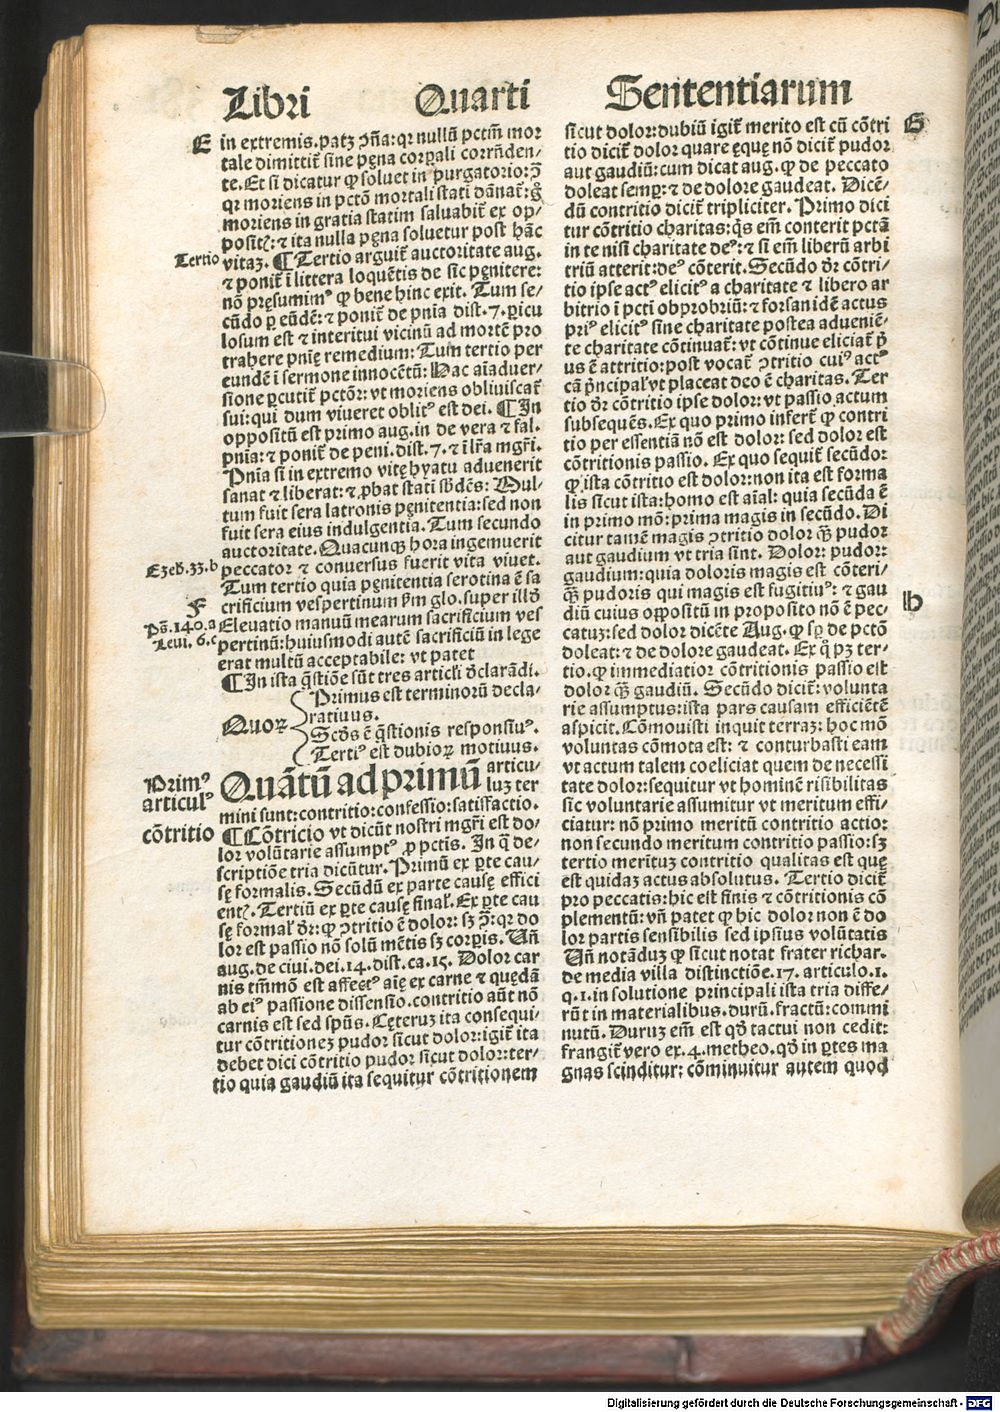 Libri Quarti Sententiarum
E
in extremis. patꝫ ɔ̃ña: qꝛ nullũ pctm̃ mor
tale dimittit̃ sine pęna corꝑali corrñden⸗
te. Et si dicatur ꝙ soluet in purgatorio: ɔ̃
qꝛ moriens in pctõ mortali stati dãnat̃: g̊
moriens in gratia statim saluabit̃ ex op⸗
positꝭ: ⁊ ita nulla pęna soluetur post hãc
Tertio
vitaꝫ. ¶ Tertio arguit̃ auctoritate aug.
⁊ ponit̃ ĩ littera loquẽtis de sic pęnitere:
nõ pręsumimꝰ ꝙ bene hinc exit. Tum se⸗
cũdo ꝑ eũdẽ: ⁊ ponit̃ de pnia dist. 7. ꝑicu
losum est ⁊ interitui vicinũ ad mortẽ pro
trahere pnię remedium: Tum tertio per
eundẽ ĩ sermone innocẽtũ: Hac aĩaduer⸗
sione ꝑcutit̃ pctõꝛ: vt moriens obliuiscat̃
sui: qui dum viueret oblitꝰ est dei. ¶ In
oppositũ est primo aug. in de vera ⁊ fal.
pnia: ⁊ ponit̃ de peni. dist. 7. ⁊ ĩ lr̃a mgr̃i.
Pnia si in extremo vitę hyatu aduenerit
sanat ⁊ liberat: ⁊ ꝓbat stati sb̃dẽs: Mul⸗
tum fuit sera latronis pęnitentia: sed non
fuit sera eius indulgentia. Tum secundo
auctoritate. Quacunqꝫ hora ingemuerit
Ezeh. 33. b
peccator ⁊ conuersus fuerit vita viuet.
Tum tertio quia pęnitentia serotina ẽ sa
F
crificium vespertinum ẜm glo. super illð
Ps̃. 140. a
Eleuatio manuũ mearum sacrificium ves
Leui. 6. c
pertinũ: huiusmodi autẽ sacrificiũ in lege
erat multũ acceptabile: vt patet
¶ In ista q̃stiõe sũt tres articli d̃clarãdi.
Quoꝝ
Primus est terminorũ decla⸗
ratiuus.
Scðs ẽ q̃stionis responsiuꝰ.
Tertiꝰ est dubioꝝ motiuus.
Primꝰ
articulꝰ
Quãtũ ad primũ articu⸗
luꝫ ter
mini sunt: contritio: confessio: satisfactio.
cõtritio
¶ Cõtricio vt dicũt nostri mgr̃i est do⸗
lor volũtarie assumptꝰ ꝓ pctis. In q̃ de⸗
scriptiõe tria dicũtur. Primũ ex ꝑte cau⸗
sę formalis. Secũdũ ex parte causę effici
entꝭ. Tertiũ ex ꝑte causę final̃. Ex ꝑte cau
sę formal̃ dr̃: ꝙ ɔtritio ẽ dolor: sꝫ ɔ̃: qꝛ do
lor est passio nõ solũ mẽtis sꝫ corꝑis. Uñ
aug. de ciui. dei. 14. dist. ca. 15. Dolor car
nis tm̃mõ est affectꝰ aĩę ex carne ⁊ quędã
ab eiꝰ passione dissensio. contritio aũt nõ
carnis est sed spũs. Cęteruꝫ ita consequi⸗
tur cõtritioneꝫ pudor sicut dolor: igit̃ ita
debet dici cõtritio pudor sicut dolor: ter⸗
tio quia gaudiũ ita sequitur cõtritionem
G
sicut dolor: dubiũ igit̃ merito est cũ cõtri
tio dicit̃ dolor quare ęque nõ dicit̃ pudor
aut gaudiũ: cum dicat aug. ꝙ de peccato
doleat semꝑ: ⁊ de dolore gaudeat. Dicẽ⸗
dũ contritio dicit̃ tripliciter. Primo dici
tur cõtritio charitas: q̃s em̃ conterit pctã
in te nisi charitate deꝰ: ⁊ si em̃ liberũ arbi
triũ atterit: deꝰ cõterit. Secũdo dr̃ cõtri⸗
tio ipse actꝰ elicitꝰ a charitate ⁊ libero ar
bitrio ĩ pcti obprobriũ: ⁊ forsan idẽ actus
priꝰ elicitꝰ sine charitate postea adueniẽ⸗
te charitate cõtinuat̃: vt cõtinue eliciat̃ p̃
us ẽ attritio: post vocat̃ ɔtritio cuiꝰ actꝰ
cã p̃ncipal̃ vt placeat deo ẽ charitas. Ter
tio dr̃ cõtritio ipse dolor: vt passio actum
subsequẽs. Ex quo primo infert̃ ꝙ contri
tio per essentiã nõ est dolor: sed dolor est
cõtritionis passio. Ex quo sequit̃ secũdo:
ꝙ ista cõtritio est dolor: non ita est forma
lis sicut ista: homo est aĩal: quia secũda ẽ
in primo mõ: prima magis in secũdo. Di
citur tamẽ magis ɔtritio dolor q̃ꝫ pudor
aut gaudium vt tria sint. Dolor: pudor:
gaudium: quia doloris magis est cõteri⸗
q̃ꝫ pudoris qui magis est fugitiuꝰ: ⁊ gau
H
diũ cuius oppositũ in proposito nõ ẽ pec⸗
catuꝫ: sed dolor dicẽte Aug. ꝙ sꝑ de pctõ
doleat: ⁊ de dolore gaudeat. Ex q̊ pꝫ ter⸗
tio. ꝙ immediatior cõtritionis passio est
dolor q̃ꝫ gaudiũ. Secũdo dicit̃: volunta
rie assumptus: ista pars causam efficiẽtẽ
aspicit. Cõmouisti inquit terraꝫ: hoc mõ
voluntas cõmota est: ⁊ conturbasti eam
vt actum talem coeliciat quem de necessi
tate dolor: sequitur vt hominẽ risibilitas
sic voluntarie assumitur vt meritum effi⸗
ciatur: nõ primo meritũ contritio actio:
non secundo meritum contritio passio: sꝫ
tertio merituꝫ contritio qualitas est quę
est quidaꝫ actus absolutus. Tertio dicit̃
pro peccatis: hic est finis ⁊ cõtritionis cõ
plementũ: vñ patet ꝙ hic dolor non ẽ do
lor partis sensibilis sed ipsius volũtatis
Uñ notãduꝫ ꝙ sicut notat frater richar.
de media villa distinctiõe. 17. articulo. 1.
q. 1. in solutione principali ista tria diffe⸗
rũt in materialibus. durũ. fractũ: commi
nutũ. Duruꝫ em̃ est qð tactui non cedit:
frangit̃ vero ex. 4. metheo. qð in ꝑtes ma
gnas scinditur: cõminuitur autem quod
Digitalisierung gefördert durch die Deutsche Forschungsgemeinschaft - DFG